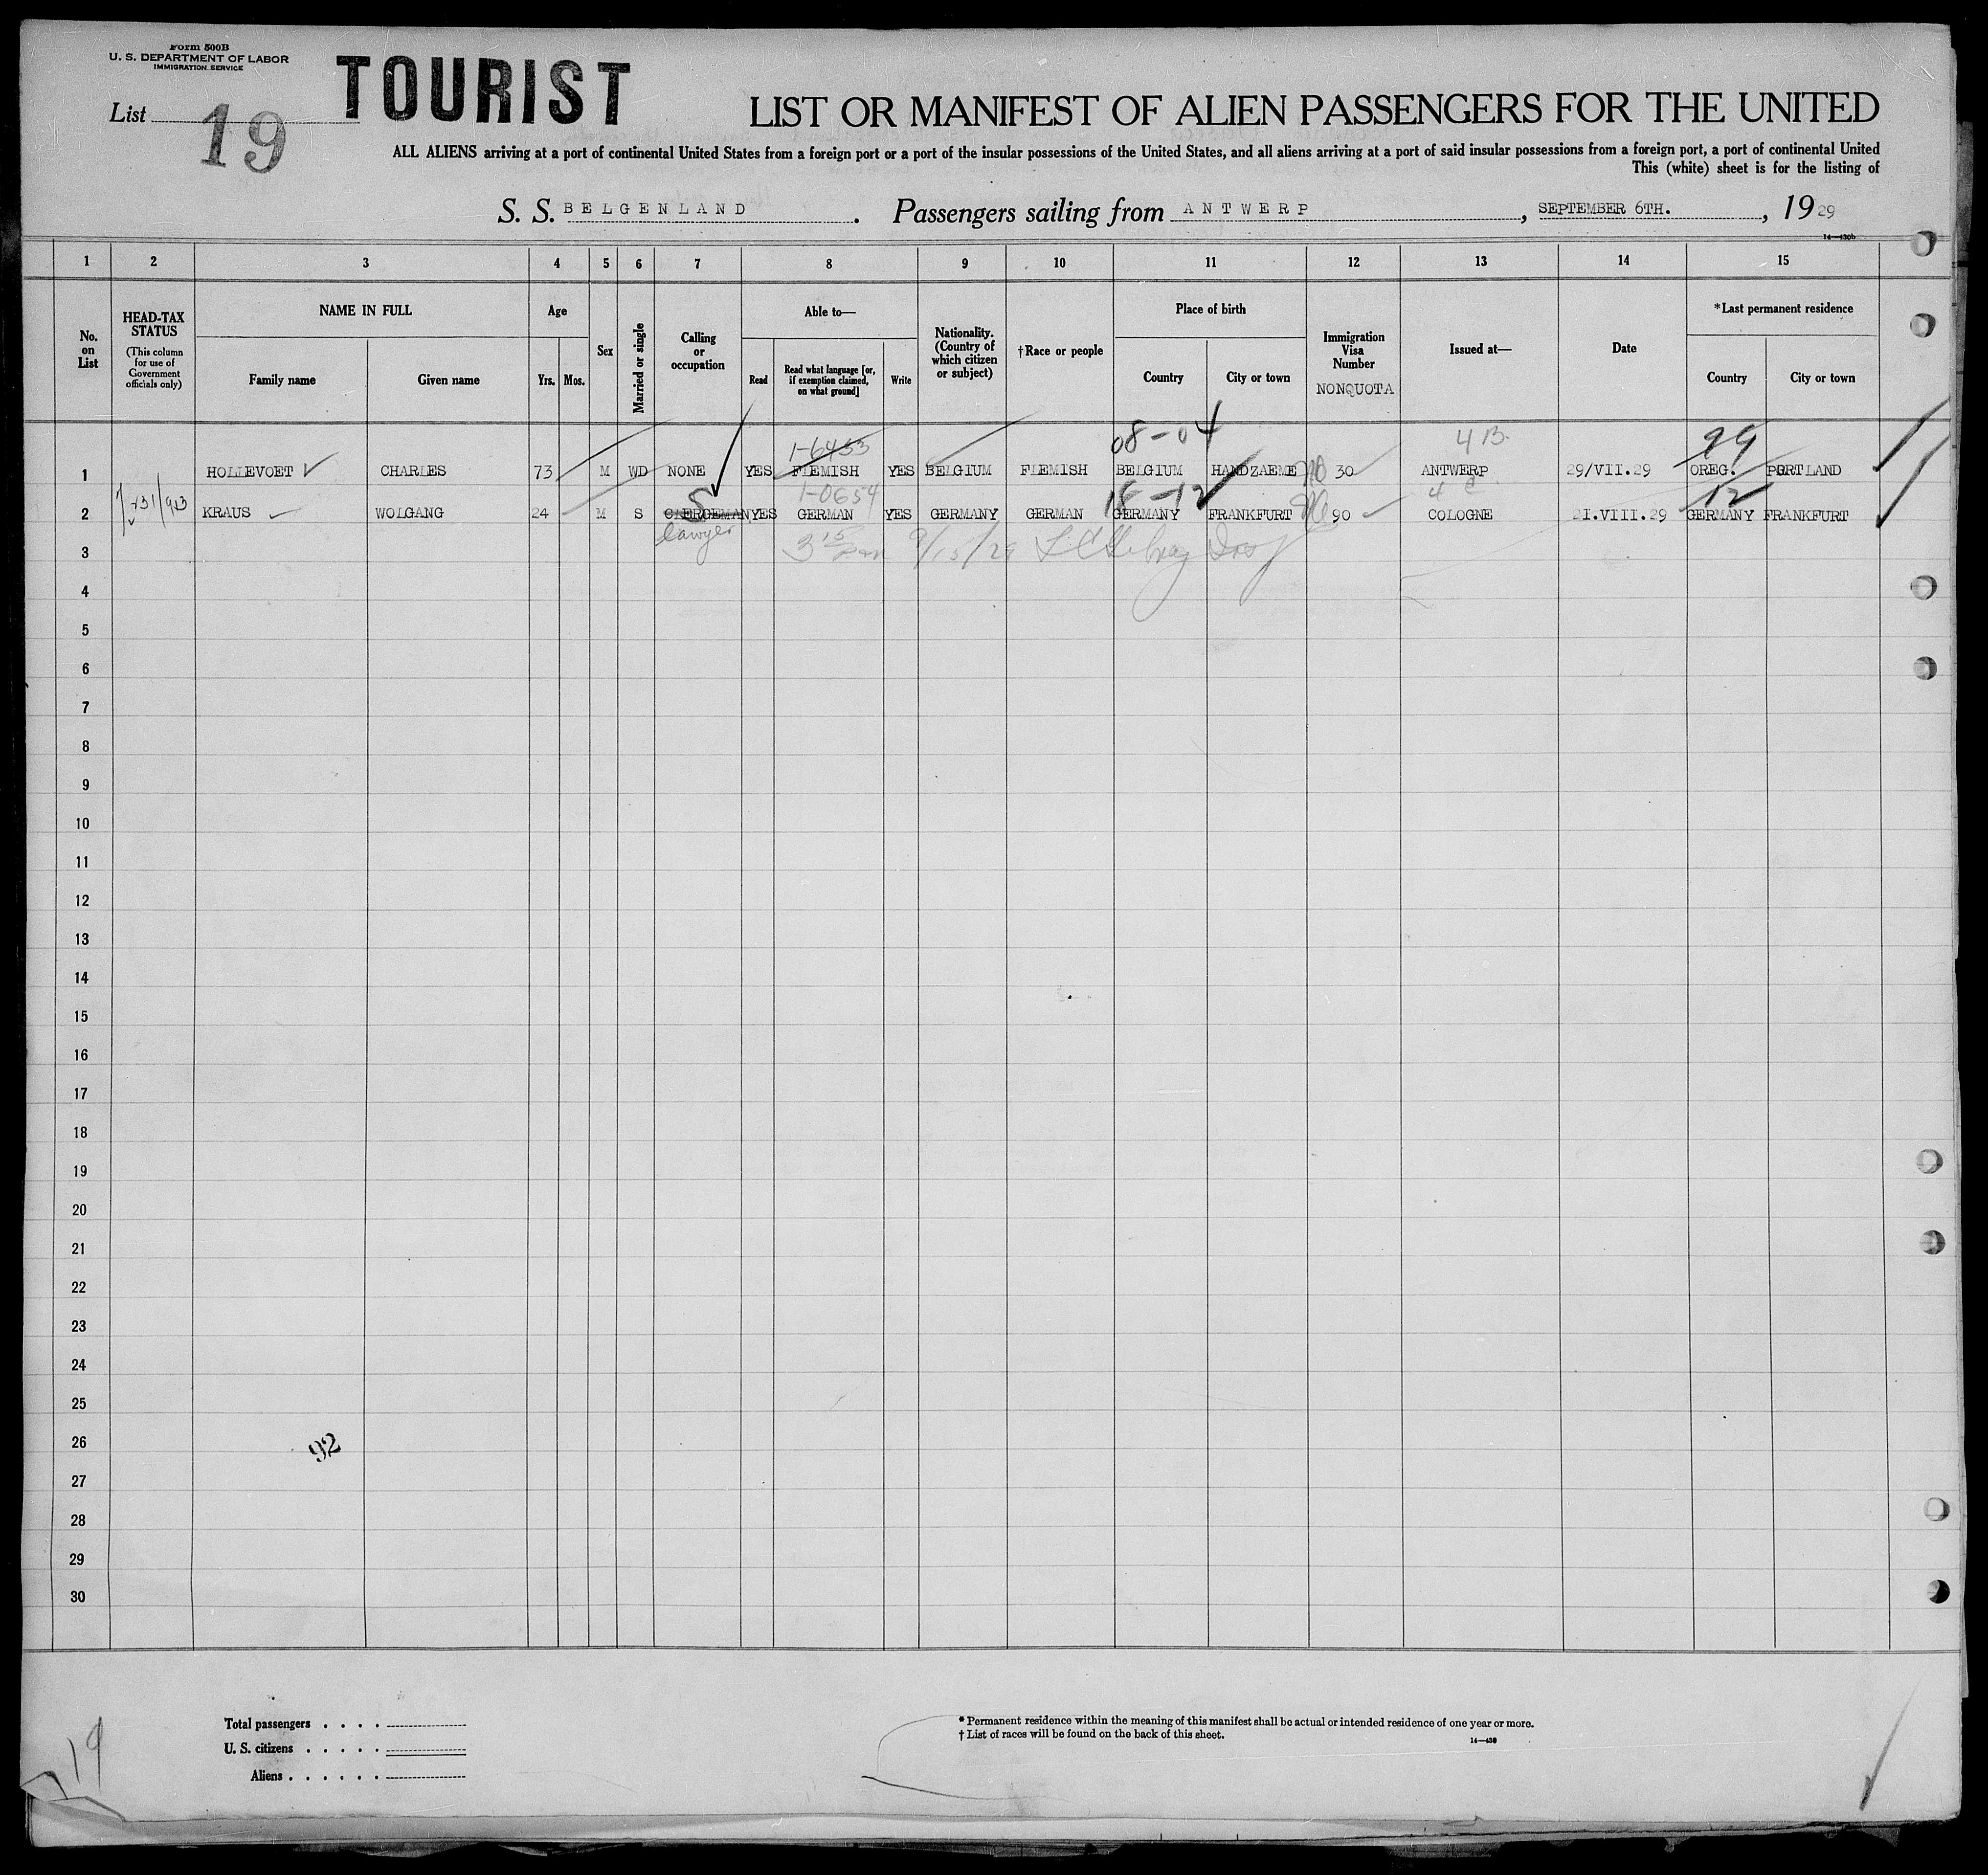 Form 500B
U. S. DEPARTMENT OF LABOR
IMMIGRATION SERVICE
TOURIST
List 19
LIST OR MANIFEST OF ALIEN PASSENGERS FOR THE UNITED
ALL ALIENS arriving at a port of continental United States from a foreign port or a port of the insular possessions of the United States, and all aliens arriving at a port of said insular possessions from a foreign port, a port of continental United
This (white) sheet is for the listing of
S. S. BELGENLAND . Passengers sailing from ANTWERP , SEPTEMBER 6TH. , 1929
14—430b
1 2 3 4 5 6 7 8 9 10 11 12 13 14 15
No. on List
HEAD-TAX STATUS
(This column for use of Government officials only)
NAME IN FULL
Family name
Given name
Age
Yrs. Mos.
Sex
Married or single
Calling or occupation
Able to—
Read
Read what language [or, if exemption claimed, on what ground]
Write
Nationality. (Country of which citizen or subject)
†Race or people
Place of birth
Country
City or town
Immigration Visa Number
NONQUOTA
Issued at—
Date
*Last permanent residence
Country
City or town
1-6453 08-04 4 B. 99
1 HOLLEVOET CHARLES 73 M WD NONE YES FLEMISH YES BELGIUM FLEMISH BELGIUM HANDZAEME 30 ANTWERP 29/VII.29 OREG. PORTLAND
S 1-0654 18-12 4 C 12
2 KRAUS WOLGANG 24 M S CLERGEMAN YES GERMAN YES GERMANY GERMAN GERMANY FRANKFURT 90 COLOGNE 2I.VIII.29 GERMANY FRANKFURT
lawyer
3 15 9/15/29
3
4
5
6
7
8
9
10
11
12
13
14
15
16
17
18
19
20
21
22
23
24
25
26
92
27
28
29
30
Total passengers . . . .
U. S. citizens . . . . .
Aliens . . . . . .
* Permanent residence within the meaning of this manifest shall be actual or intended residence of one year or more.
† List of races will be found on the back of this sheet.
14—430
19